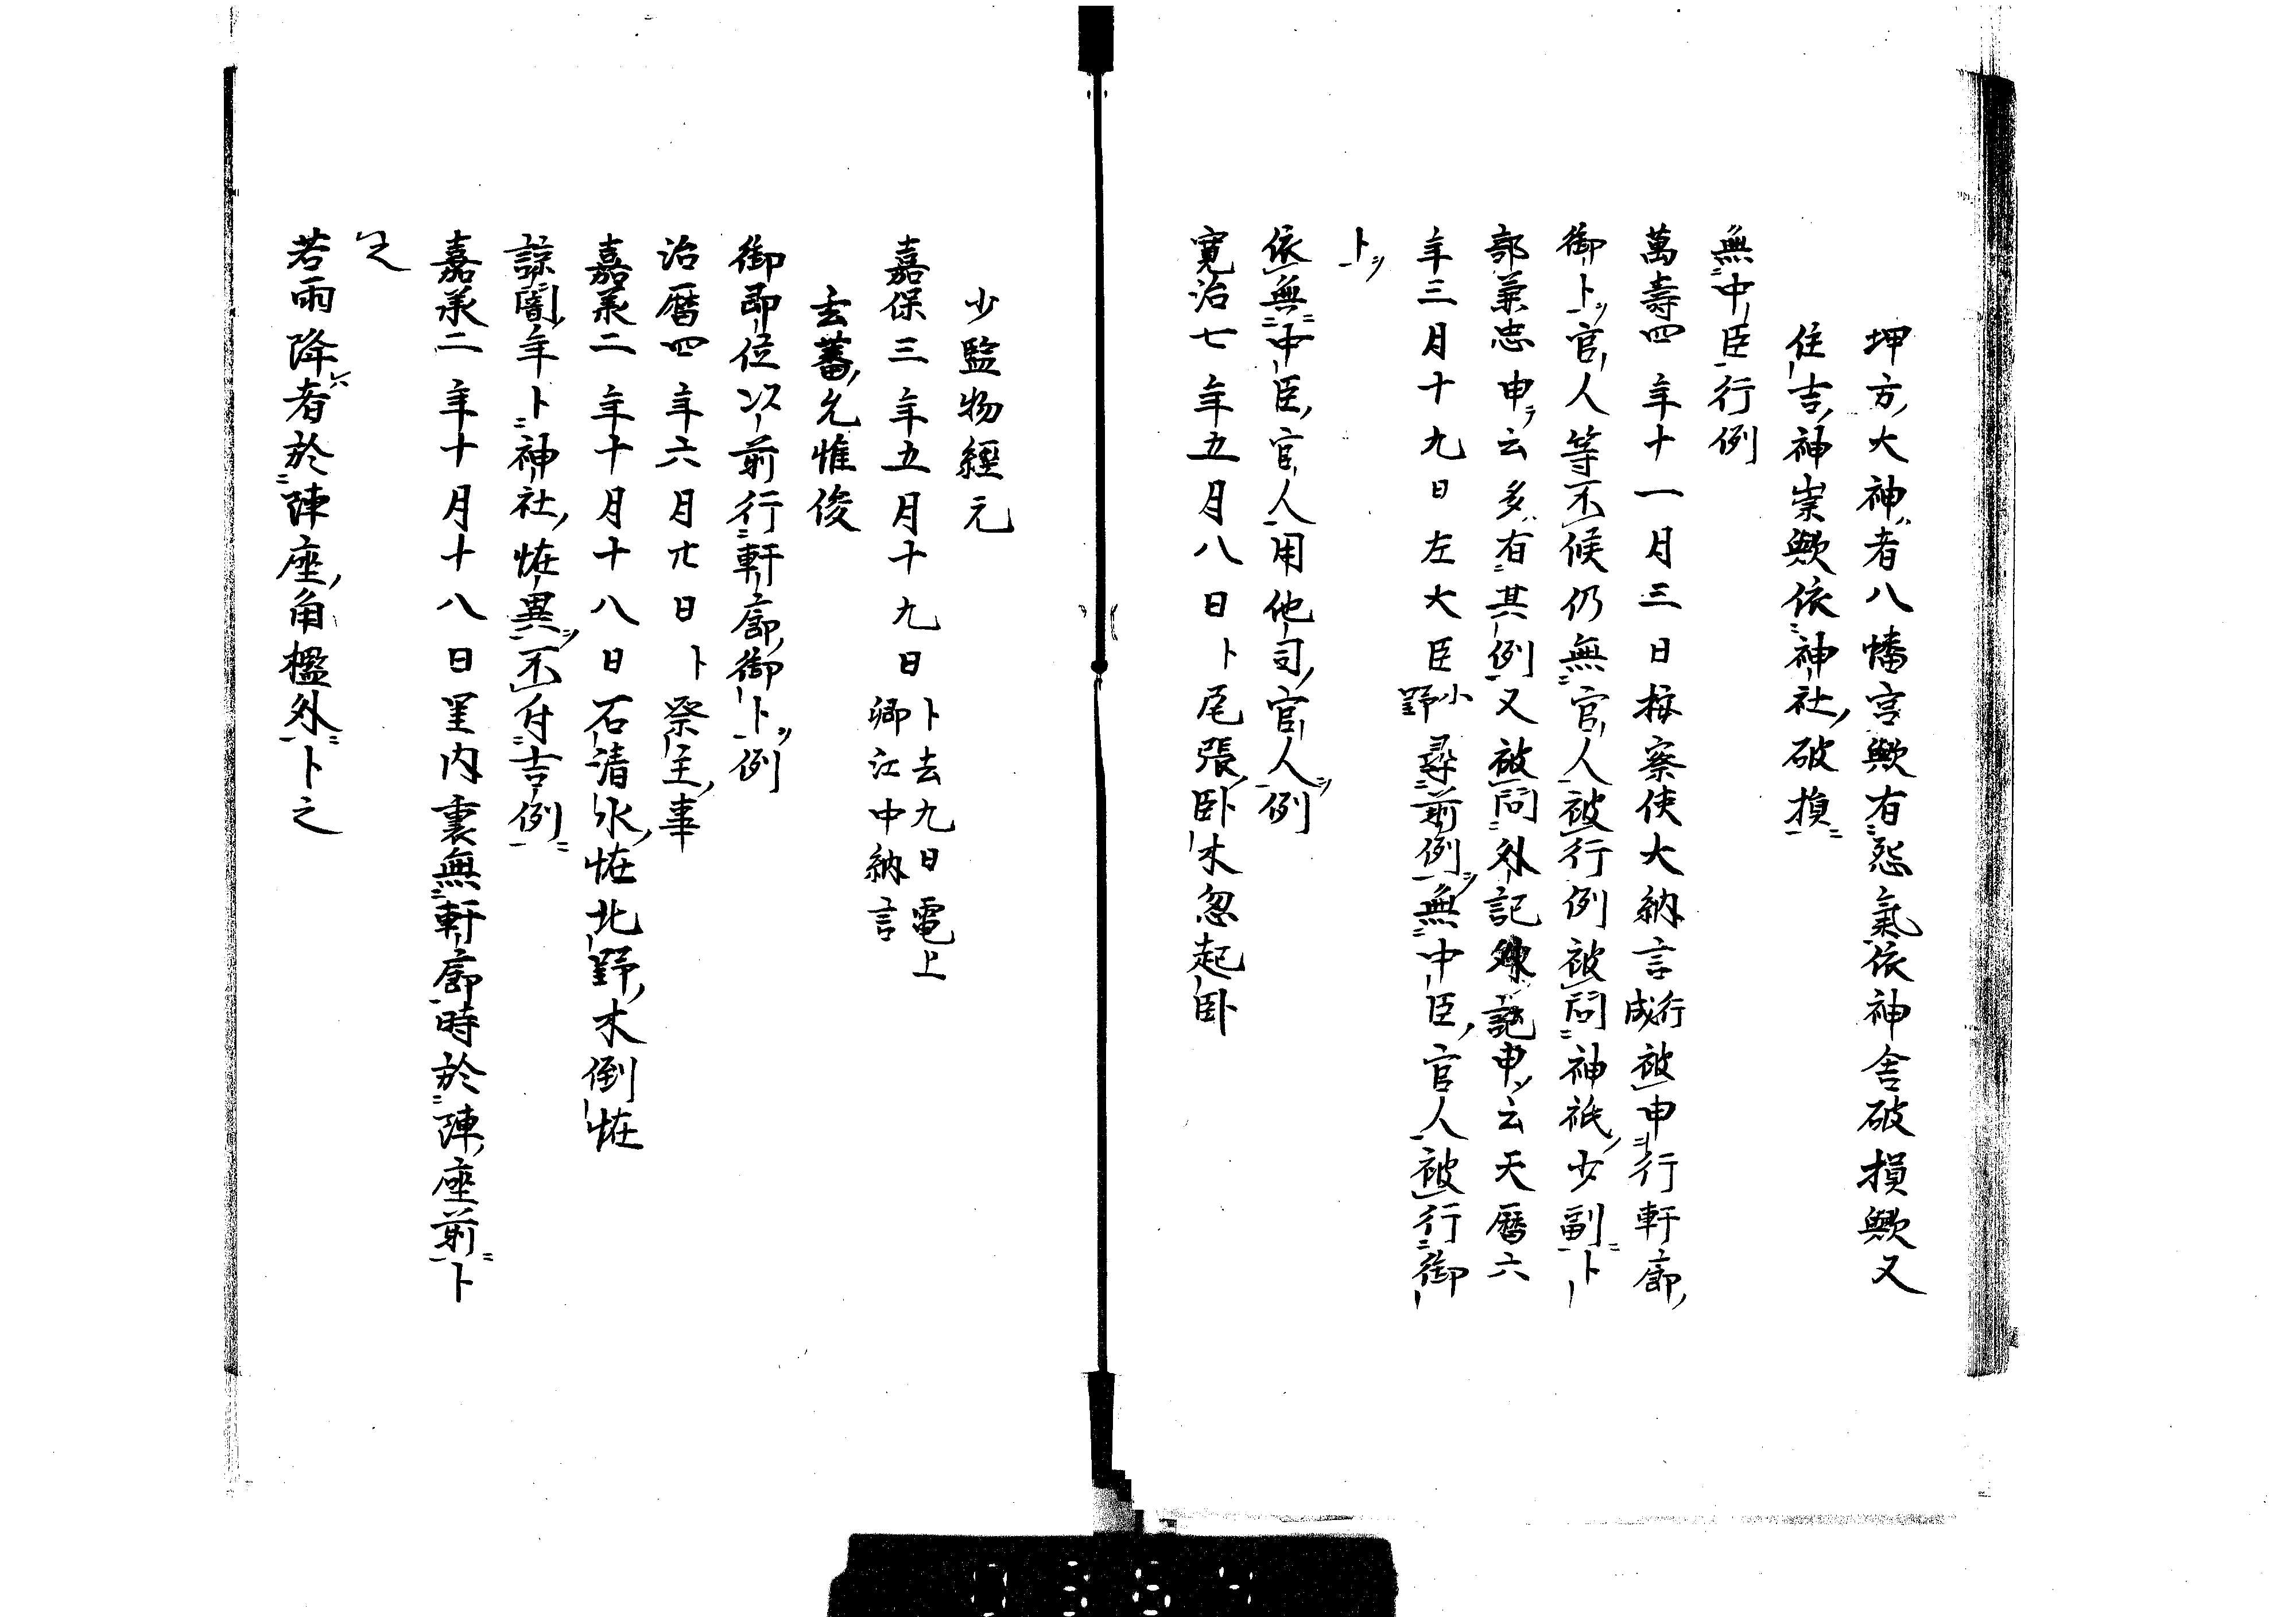 坤方大神者八幡宮歟有怨氣依神舎破損歟又
住吉神崇歟依神社破損
無中臣行例
萬壽四年十一月三日按察使大納言行成被申行軒廊
御卜官人等不候仍無官人被行例被問神祇少副卜
部兼忠申云多有其例又被問外記外記申云天暦六
年三月十九日左大臣小野尋前例無中臣官人被行御
卜
依無中臣官人用他司官人例
寛治七年五月八日卜尾張卧木忽起卧
少監物經元
嘉保三年五月十九日卜去九日電上卿江中納言
玄蕃允惟俊
御即位以前行軒廊御卜例
治暦四年六月廿日卜祭主事
嘉承二年十月十八日石清水恠北野木倒恠
諒闇年卜神社恠異不付吉例
嘉承二年十月十八日里内裏無軒廊時於陣座前卜
之
若雨降者於陣座角檻外卜之